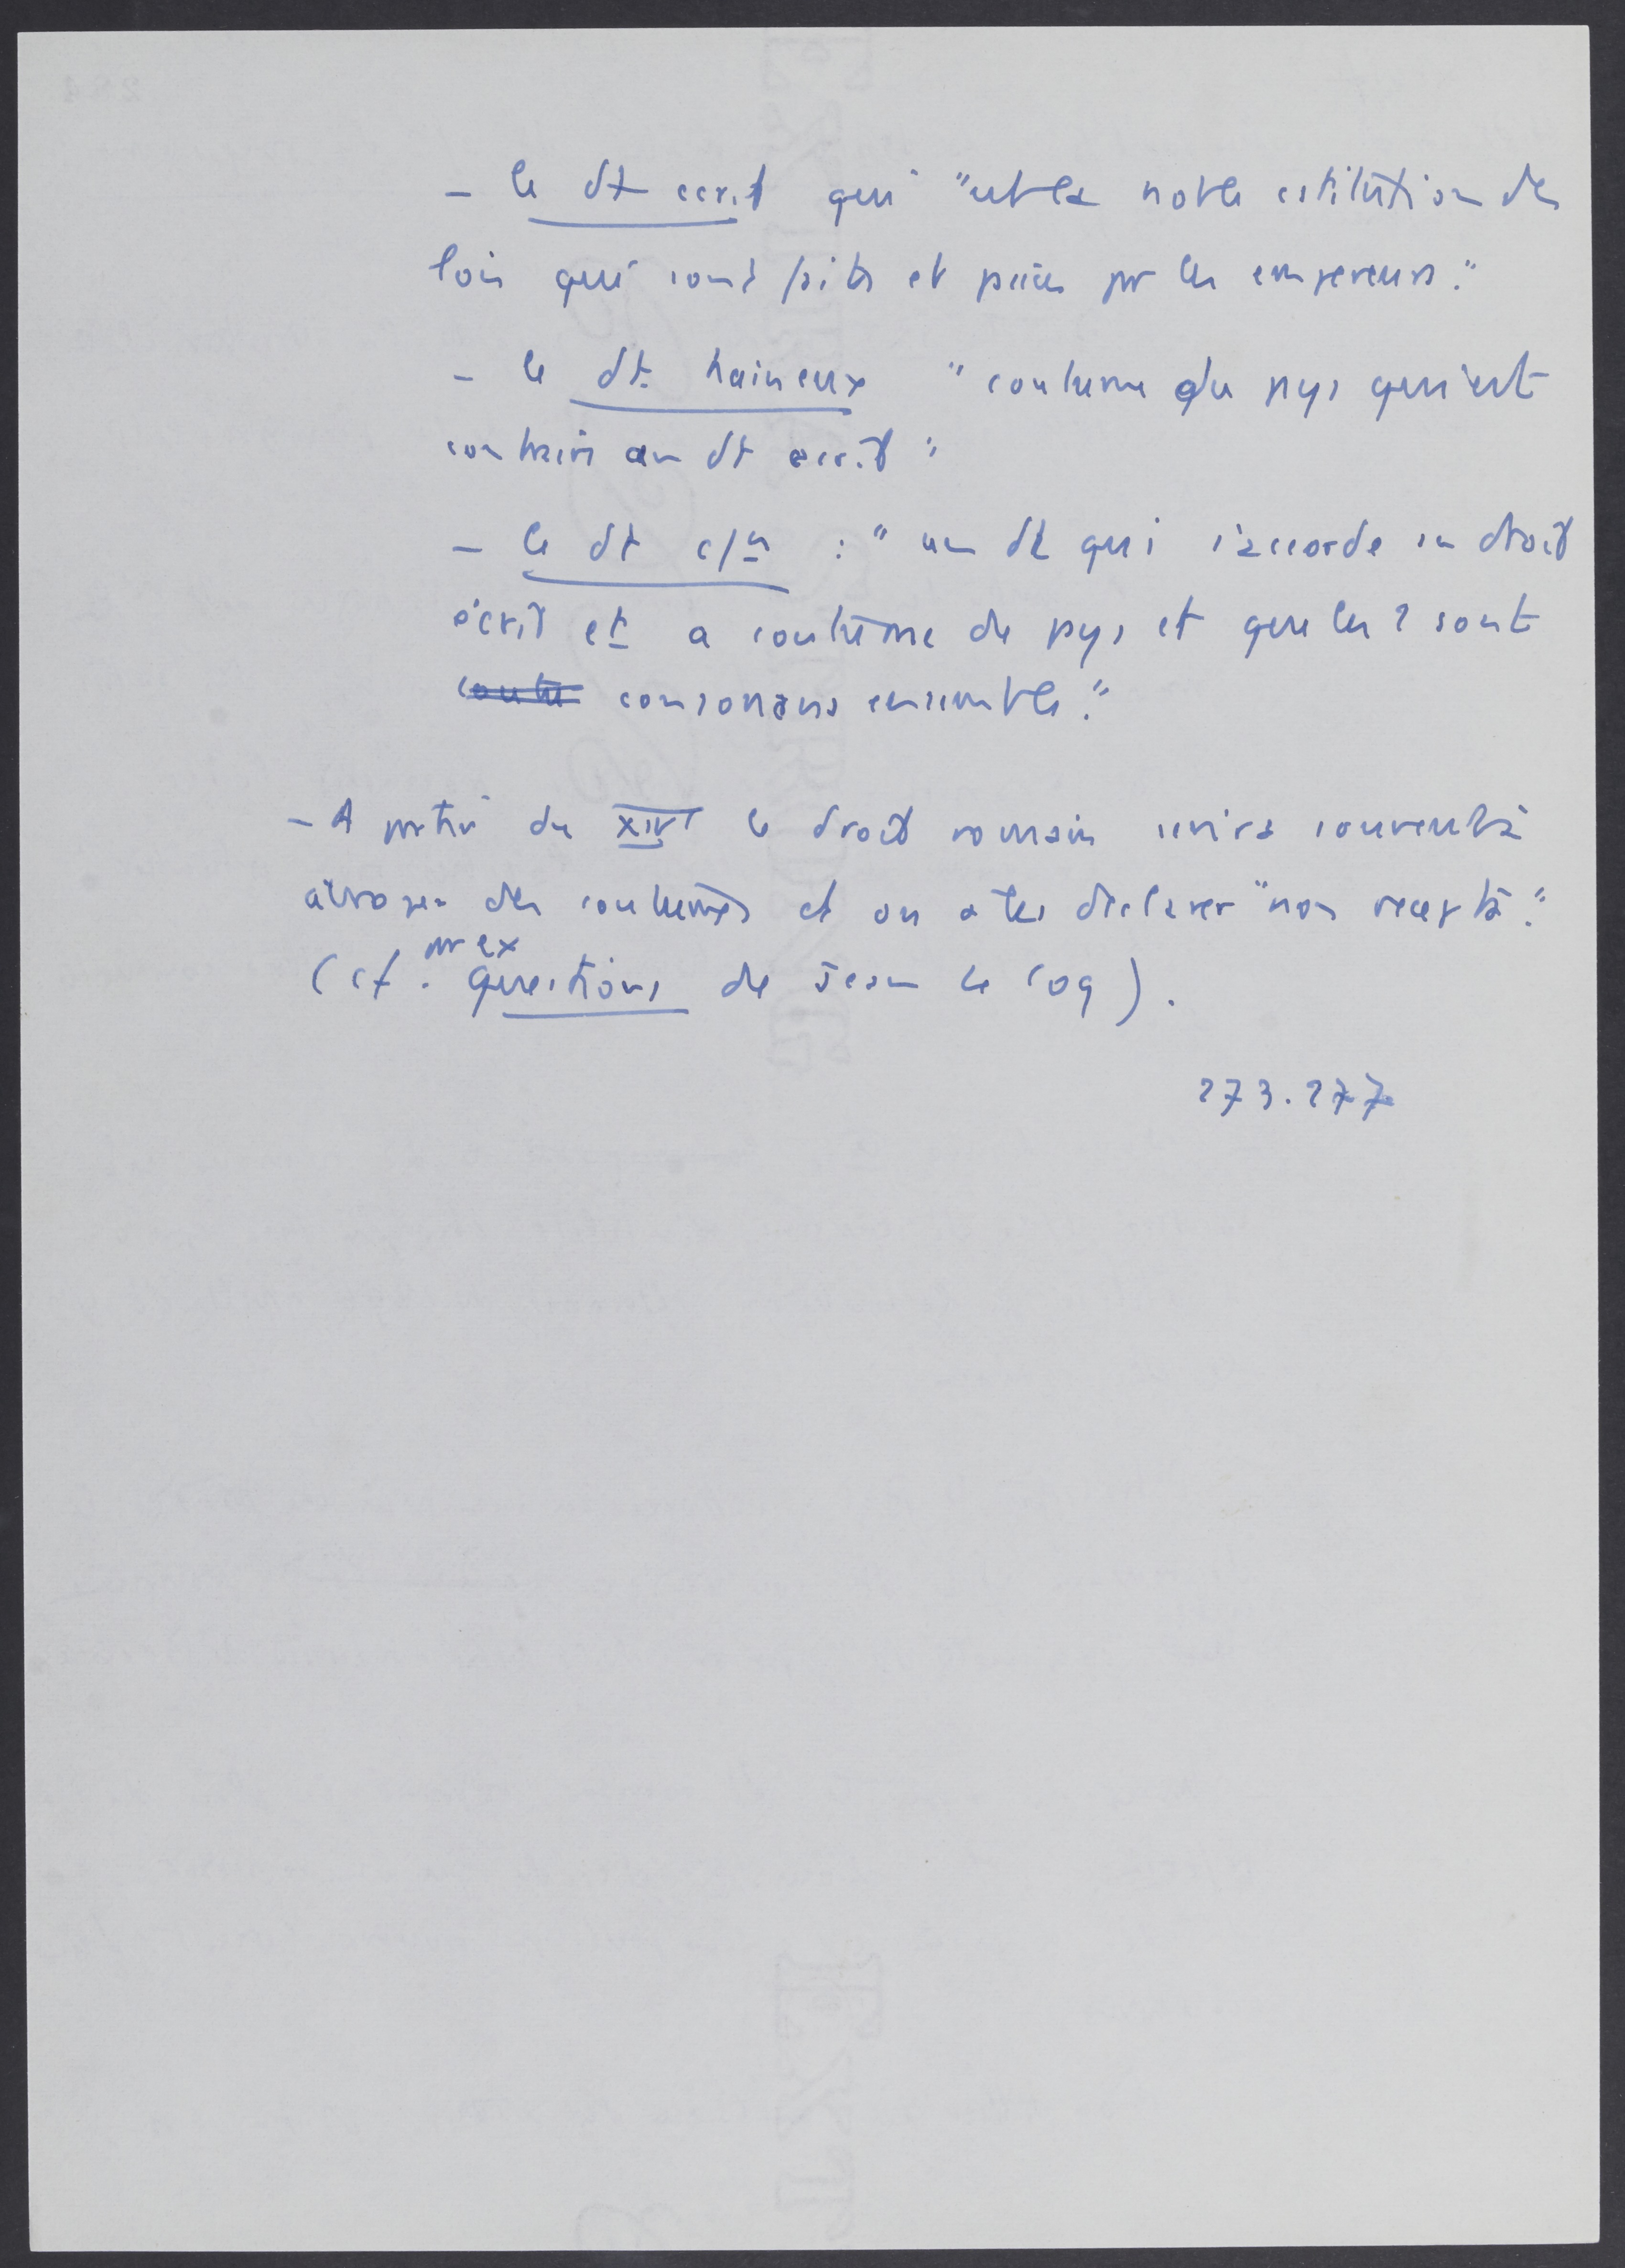 - le dt ecrit qui "est la noble estitution des
lois qui sont faits et par les empereurs."
- le dt. haineux "coutume du pys qui est
contraire au dt ecrit"
- le dt c/n : "un dt qui s'accorde en droit
écrit et a coutume de pys et que les 2 sont
consonans ensemble."
- A partir du XIVe le droit romain servira souvent à
abroger des coutumes et on a les declarer "non recepta."
(cf. pr ex Questions de Jean Le Coq).
273.277